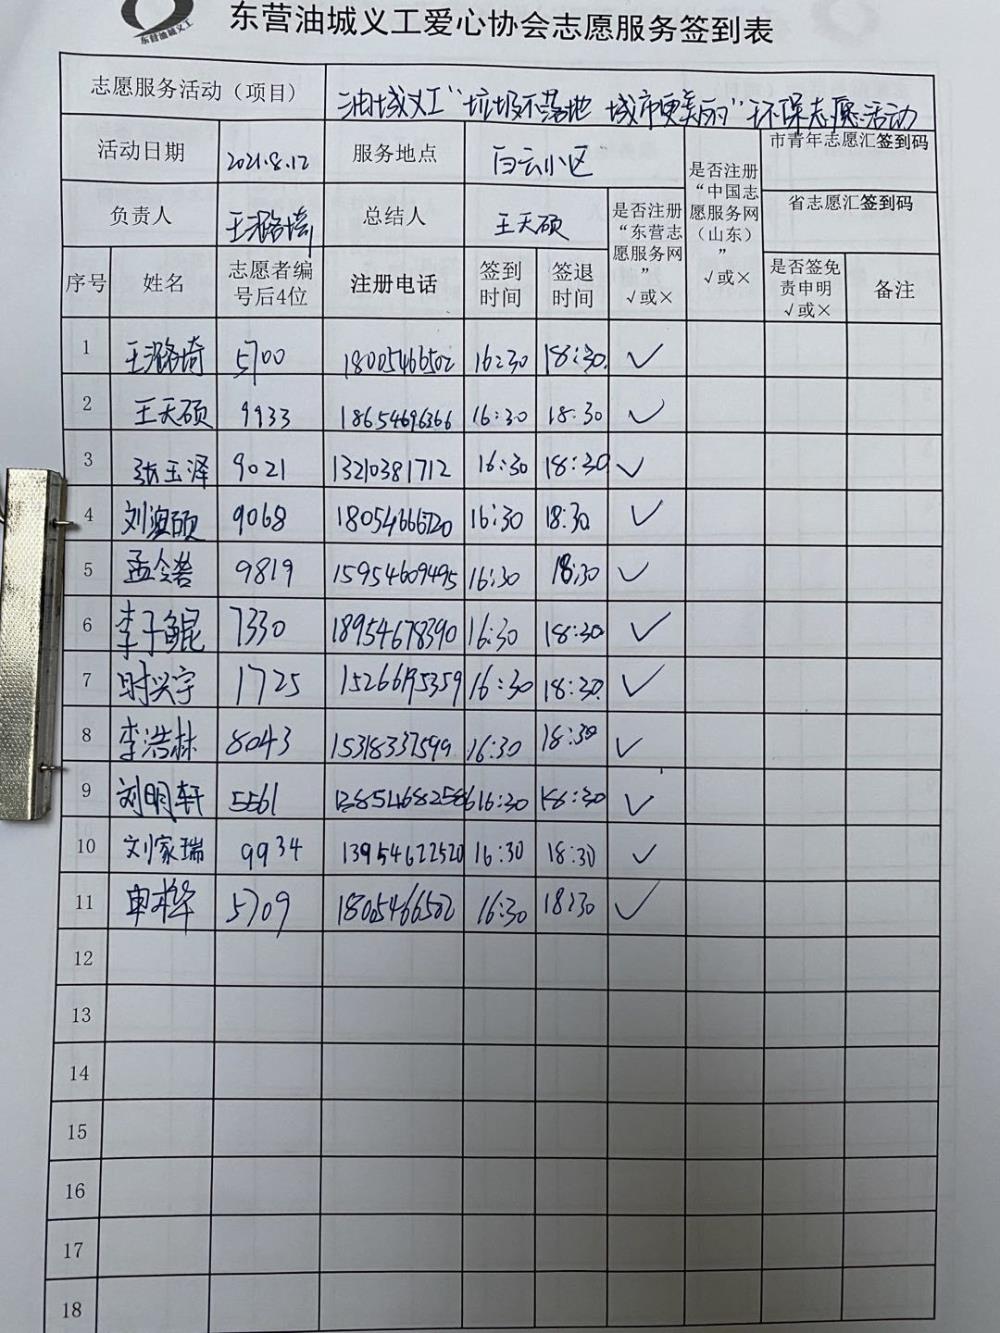 东营油城义工
东营油城义工爱心协会志愿服务签到表
志愿服务活动（项目） 油城义工“垃圾不落地 城市更美丽”环保志愿活动
活动日期 2021.8.12 服务地点 白云小区 是否注册“中国志愿服务网（山东）”√或× 市青年志愿汇签到码
负责人 王潞琦 总结人 王天硕 是否注册“东营志愿服务网”√或× 省志愿汇签到码
序号 姓名 志愿者编号后4位 注册电话 签到时间 签退时间 是否签免责申明√或× 备注
1 王潞琦 5700 18005466502 16:30 18:30 ✓
2 王天硕 9933 18654696366 16:30 18:30 ✓
3 张玉泽 9021 13210381712 16:30 18:30 ✓
4 刘 硕 9068 16:30 18:30 ✓
5 孟令 9819 15954609495 16:30 18:30 ✓
6 李子鲲 7330 18954678390 16:30 18:30 ✓
7 时兴宇 1725 16:30 18:30 ✓
8 李浩林 8043 15318337599 16:30 18:30 ✓
9 刘明轩 5561 16:30 18:30 ✓
10 刘家瑞 9934 13954622520 16:30 18:30 ✓
11 申桦 5709 18005466502 16:30 18:30 ✓
12
13
14
15
16
17
18